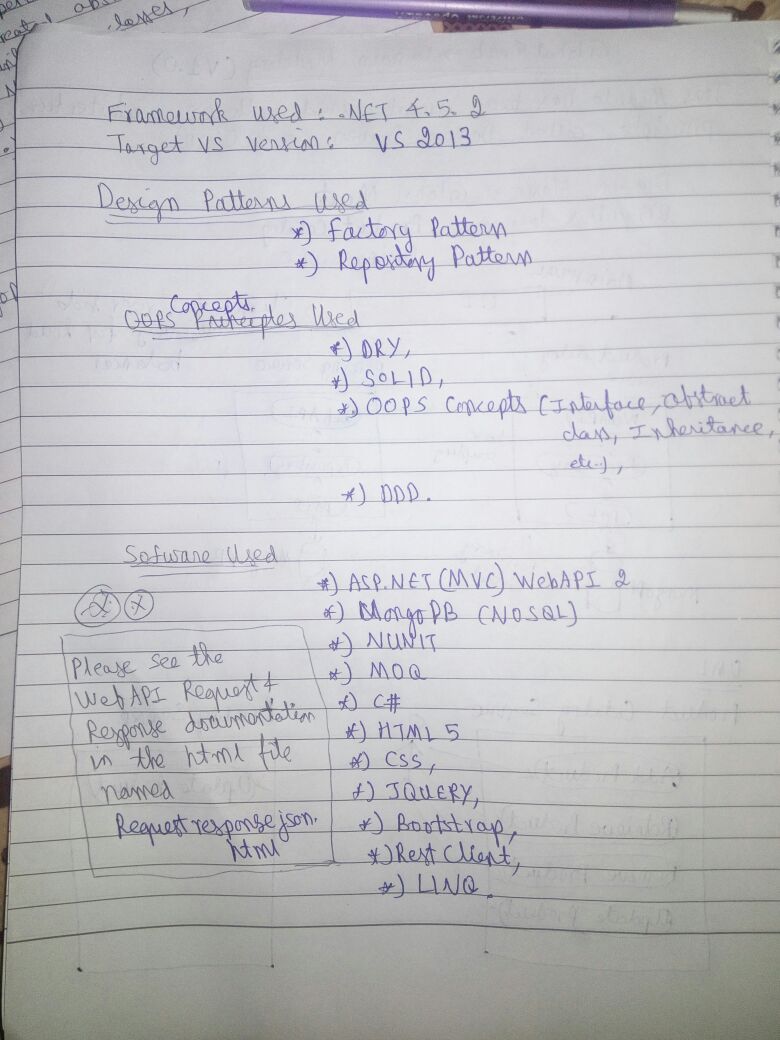 Framework used : .NET 4.5.2
Target VS Version : VS 2013
Design Patterns Used
*) Factory Pattern
*) Repository Pattern
Concepts.
OOPS Principles Used
*) DRY,
*) SOLID,
*) OOPS Concepts (Interface, abstract
class, Inheritance,
etc..),
*) DDD.
Sofware Used
*) ASP.NET (MVC) WebAPI 2
*) MongoDB (NOSQL)
*) NUNIT
*) MOQ
*) C#
*) HTML 5
*) CSS,
*) JQUERY,
*) Bootstrap,
*) Rest Client,
*) LINQ.
Please see the
WebAPI Request &
Response documentation
in the html file
named
Requestresponsejson.
html